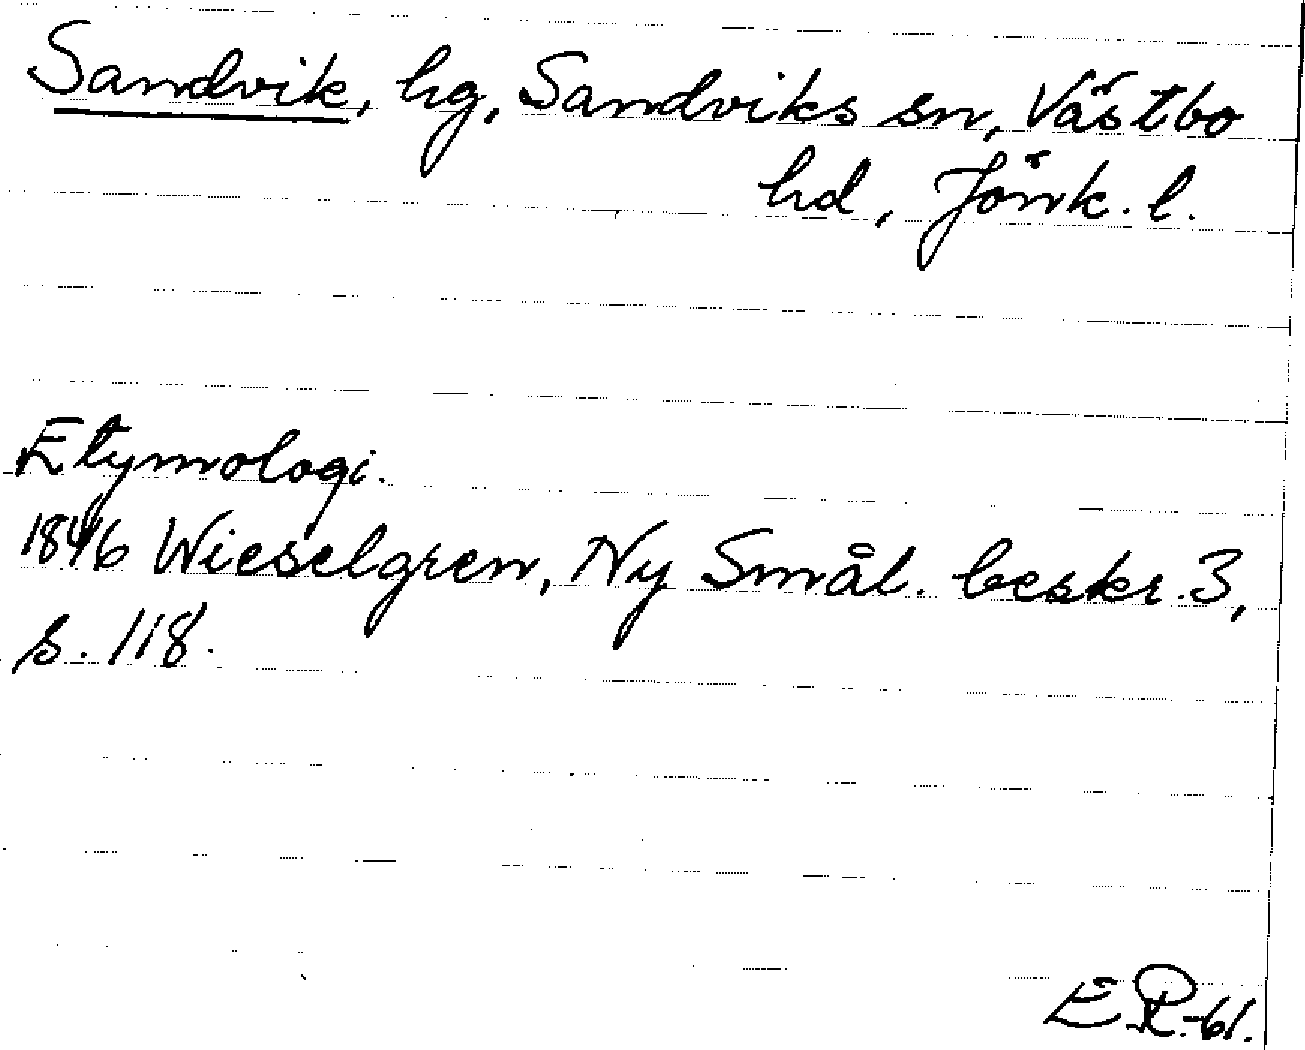 Sandvik, hg, Sandviks sn, Västbo
hd, Jönk. l.
Etymologi.
1846 Wieselgren, Ny Smål. beskr. 3,
s. 118.
ER-61.